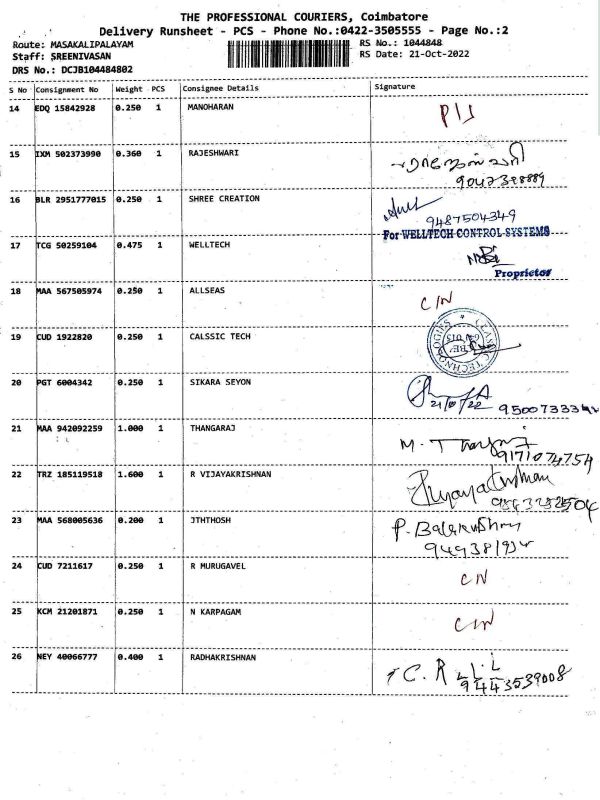 THE PROFESSIONAL COURIERS, Coimbatore
Delivery Runsheet - PCS - Phone No.:0422-3505555 - Page No.:2
Route: MASAKALIPALAYAM
RS No.: 1044848
Staff: SREENIVASAN
RS Date: 21-Oct-2022
DRS No.: DCJB104484802
S No Consignment No Weight PCS Consignee Details Signature
14 EDQ 15842928 0.250 1 MANOHARAN
15 IXM 502373990 0.360 1 RAJESHWARI
16 BLR 2951777015 0.250 1 SHREE CREATION
9487504349
For WELLTECH CONTROL SYSTEMS
17 TCG 50259104 0.475 1 WELLTECH
Proprietor
18 MAA 567505974 0.250 1 ALLSEAS C/N
19 CUD 1922820 0.250 1 CALSSIC TECH
CLASSIC TECHNOLOGIES
20 PGT 6004342 0.250 1 SIKARA SEYON
21/10/22
21 MAA 942092259 1.000 1 THANGARAJ M.
9171074754
22 TRZ 185119518 1.600 1 R VIJAYAKRISHNAN
23 MAA 568005636 0.200 1 JTHTHOSH P.
24 CUD 7211617 0.250 1 R MURUGAVEL C/N
25 KCM 21201871 0.250 1 N KARPAGAM C/N
26 NEY 40066777 0.400 1 RADHAKRISHNAN C. R
9443539008